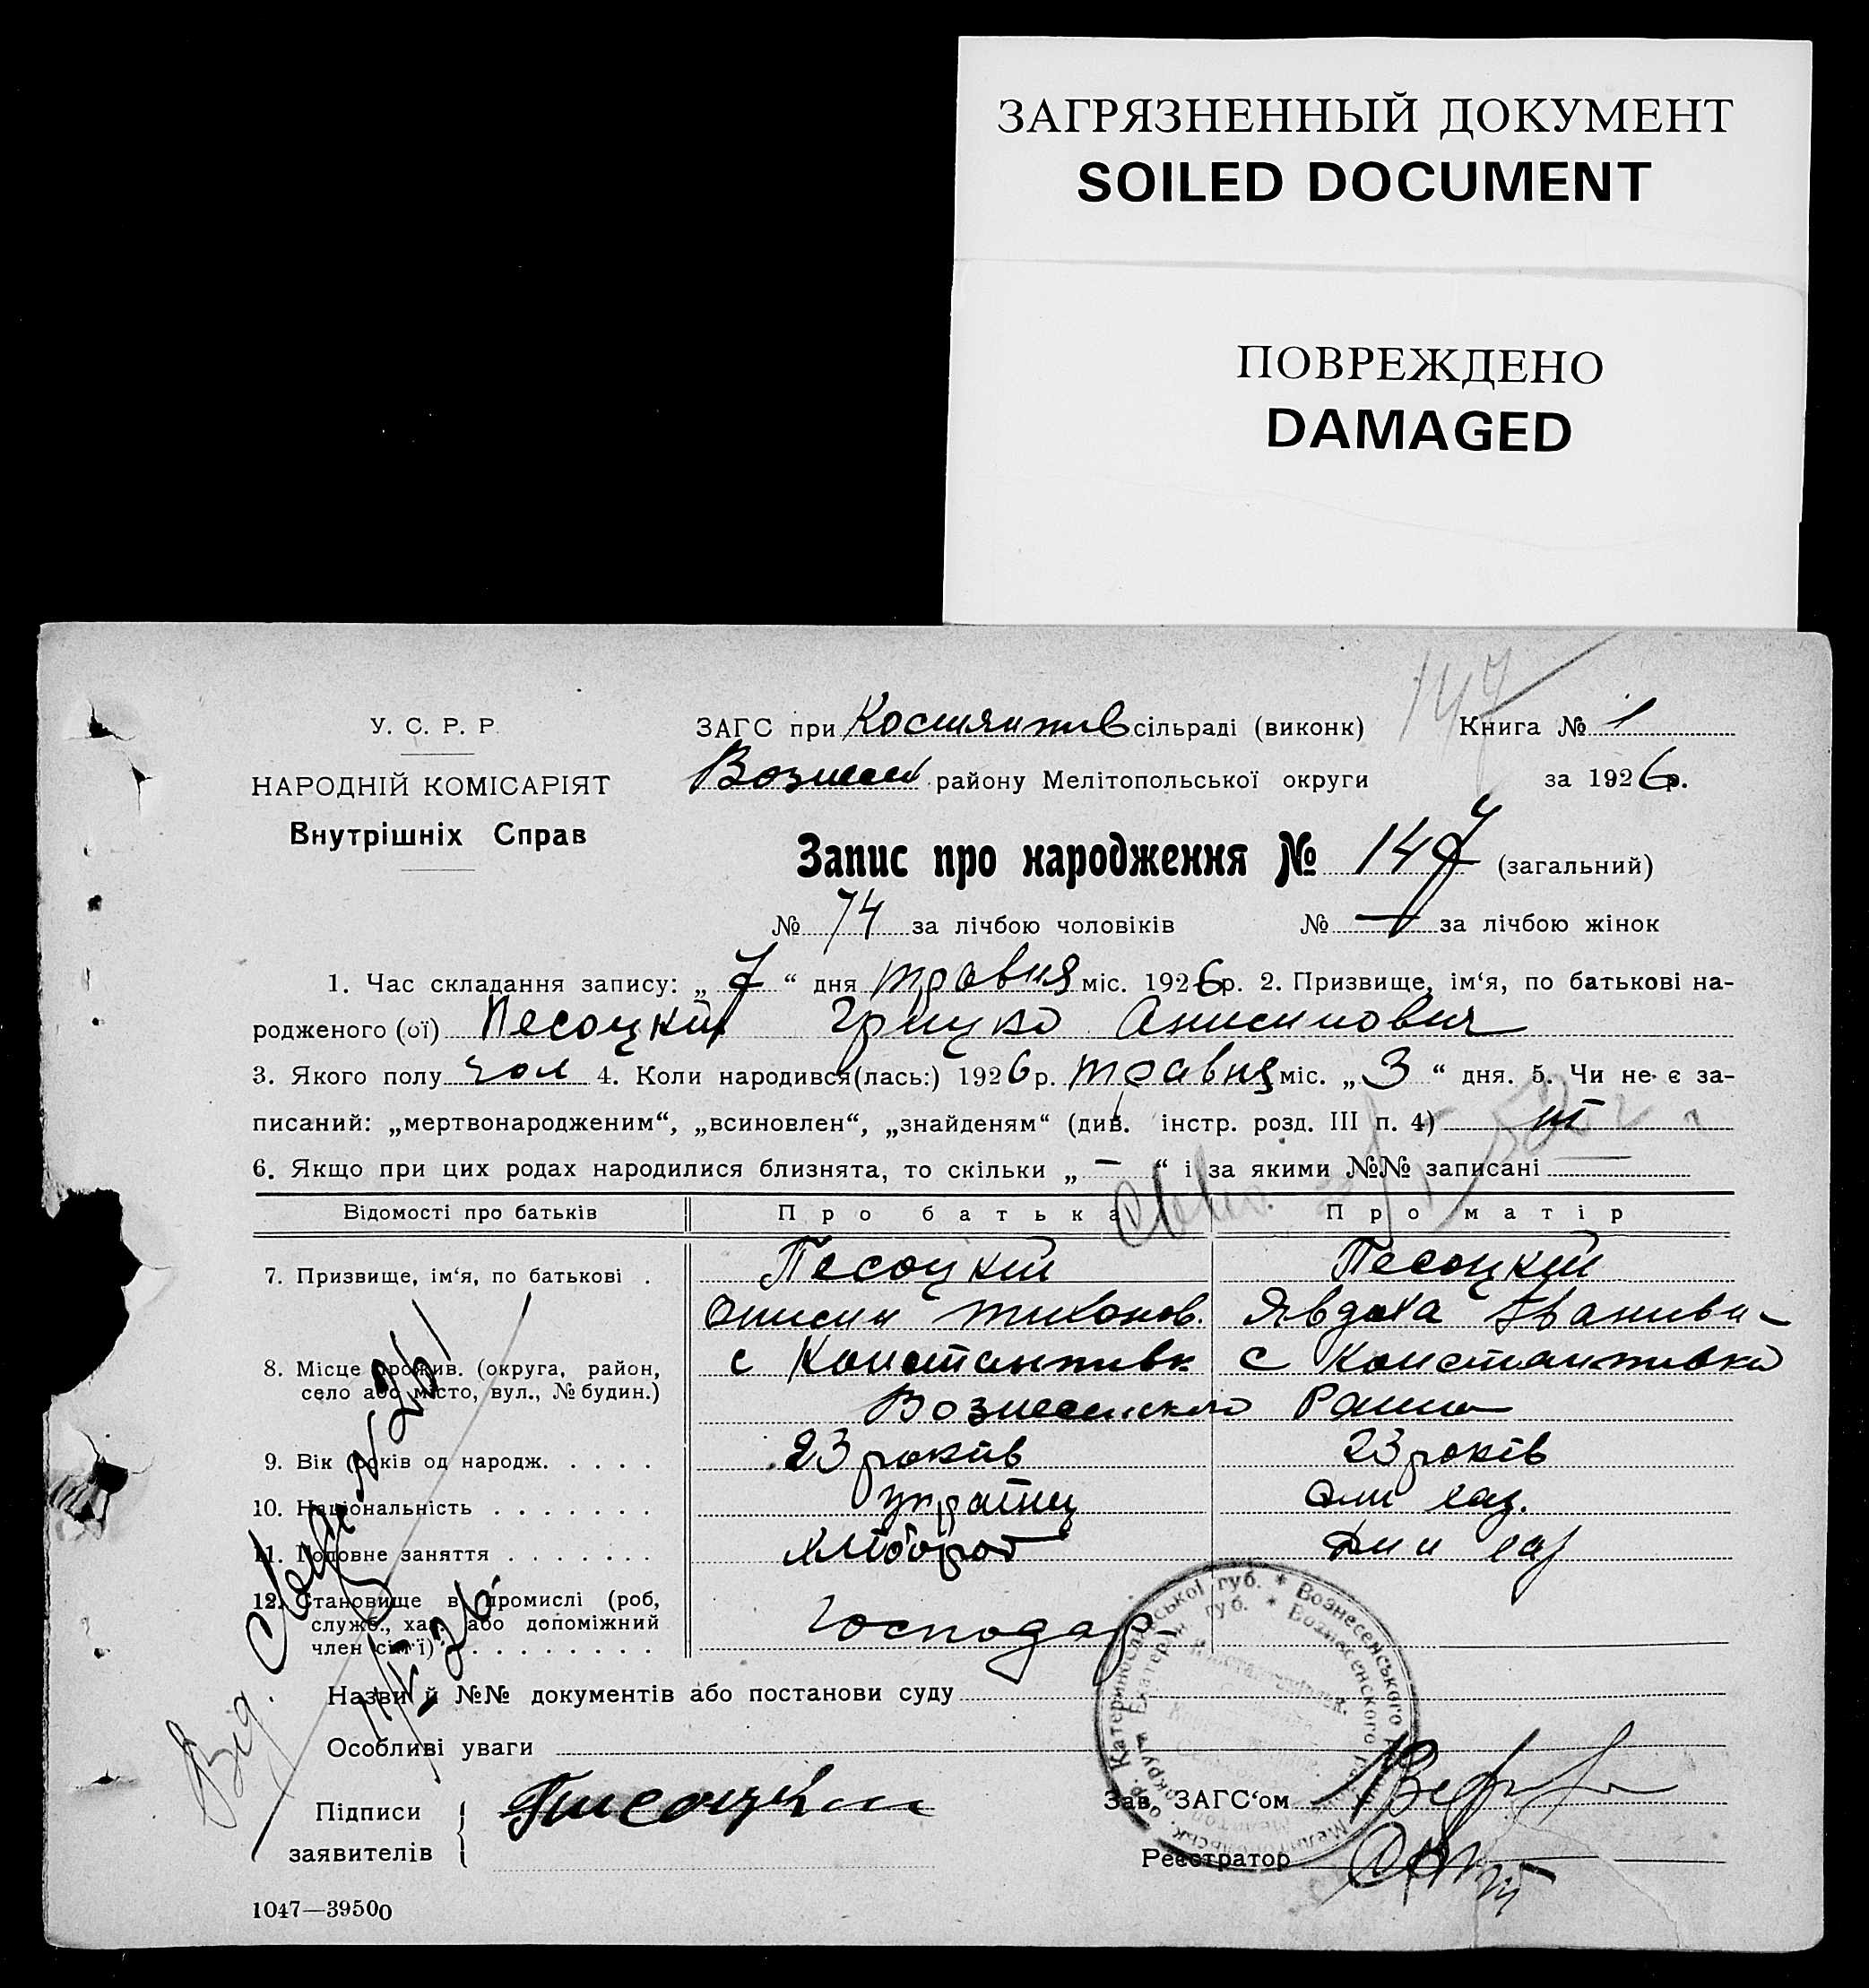 ЗАГРЯЗНЕННЫЙ ДОКУМЕНТ
SOILED DOCUMENT
ПОВРЕЖДЕНО
DAMAGED
147
У. С. Р. Р.
НАРОДНІЙ КОМІСАРІЯТ
Внутрішніх Справ
ЗАГС при Костянтив сільраді (виконк) Книга № 1
Вознесен району Мелітопольської округи за 1926 р.
Запис про народження № 147 (загальний)
№ 74 за лічбою чоловіків № — за лічбою жінок
1. Час складання запису: „ 7 “ дня травня міс. 1926 р. 2. Призвище, ім‘я, по батькові на-
родженого (ої) Песоцкий Грицко Анисимович
3. Якого полу чол 4. Коли народився(лась:) 1926 р. травня міс. „ 3 “ дня. 5. Чи не є за-
писаний: „мертвонародженим“, „всиновлен“, „знайденям“ (див. інстр. розд. III п. 4)
6. Якщо при цих родах народилися близнята, то скільки „ — “ і за якими №№ записані —
Відомості про батьків Про батька Про матір
7. Призвище, ім‘я, по батькові . Песоцкий Песоцкий
Онисим Тихонов. Явдоха Іванивн
8. Місце прожив. (округа, район, село або місто, вул., № будин.) с Константивк с Константивка
Вознесенского Району
9. Вік (років од народж. . . . . 23 років 23 років
10. Національність . . . . . . . українец
11. Головне заняття . . . . . . . хлібороб
12. Становище в промислі (роб, служб., хаз. або допоміжний член сім‘ї) . . . . . . . . . Господар
Назви й №№ документів або постанови суду
Особливі уваги
Підписи
заявителів
Зав. ЗАГС‘ом
Реєстратор
Катеринославської губ. * Вознесенського
1047—39500